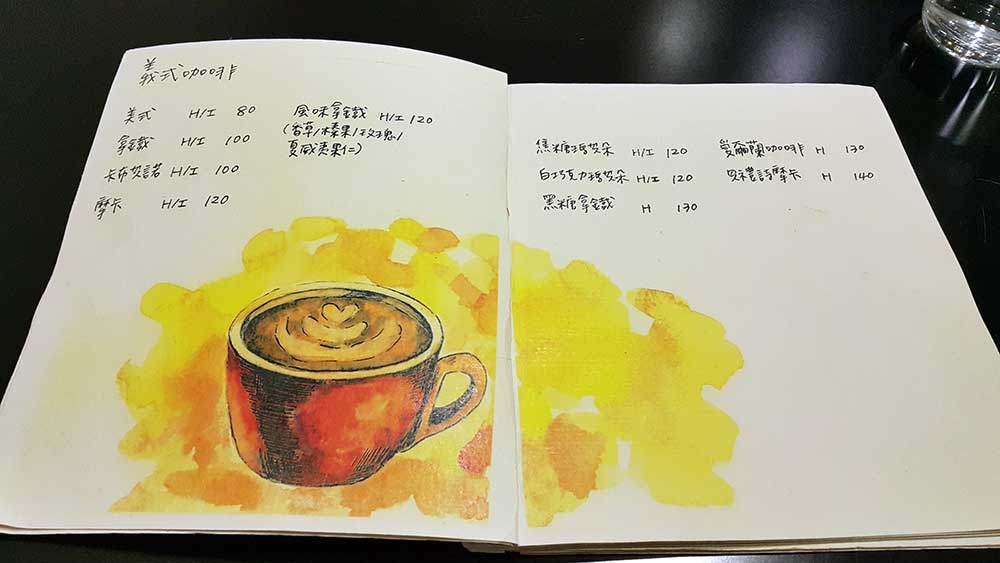 義式咖啡
美式 H/I 80
拿鐵 H/I 100
卡布奇諾 H/I 100
摩卡 H/I 120
風味拿鐵 H/I 120
(香草/榛果/玫瑰/
夏威夷果仁)
焦糖瑪奇朵 H/I 120
白巧克力瑪奇朵 H/I 120
黑糖拿鐵 H 130
愛爾蘭咖啡 H 130
貝禮詩摩卡 H 140